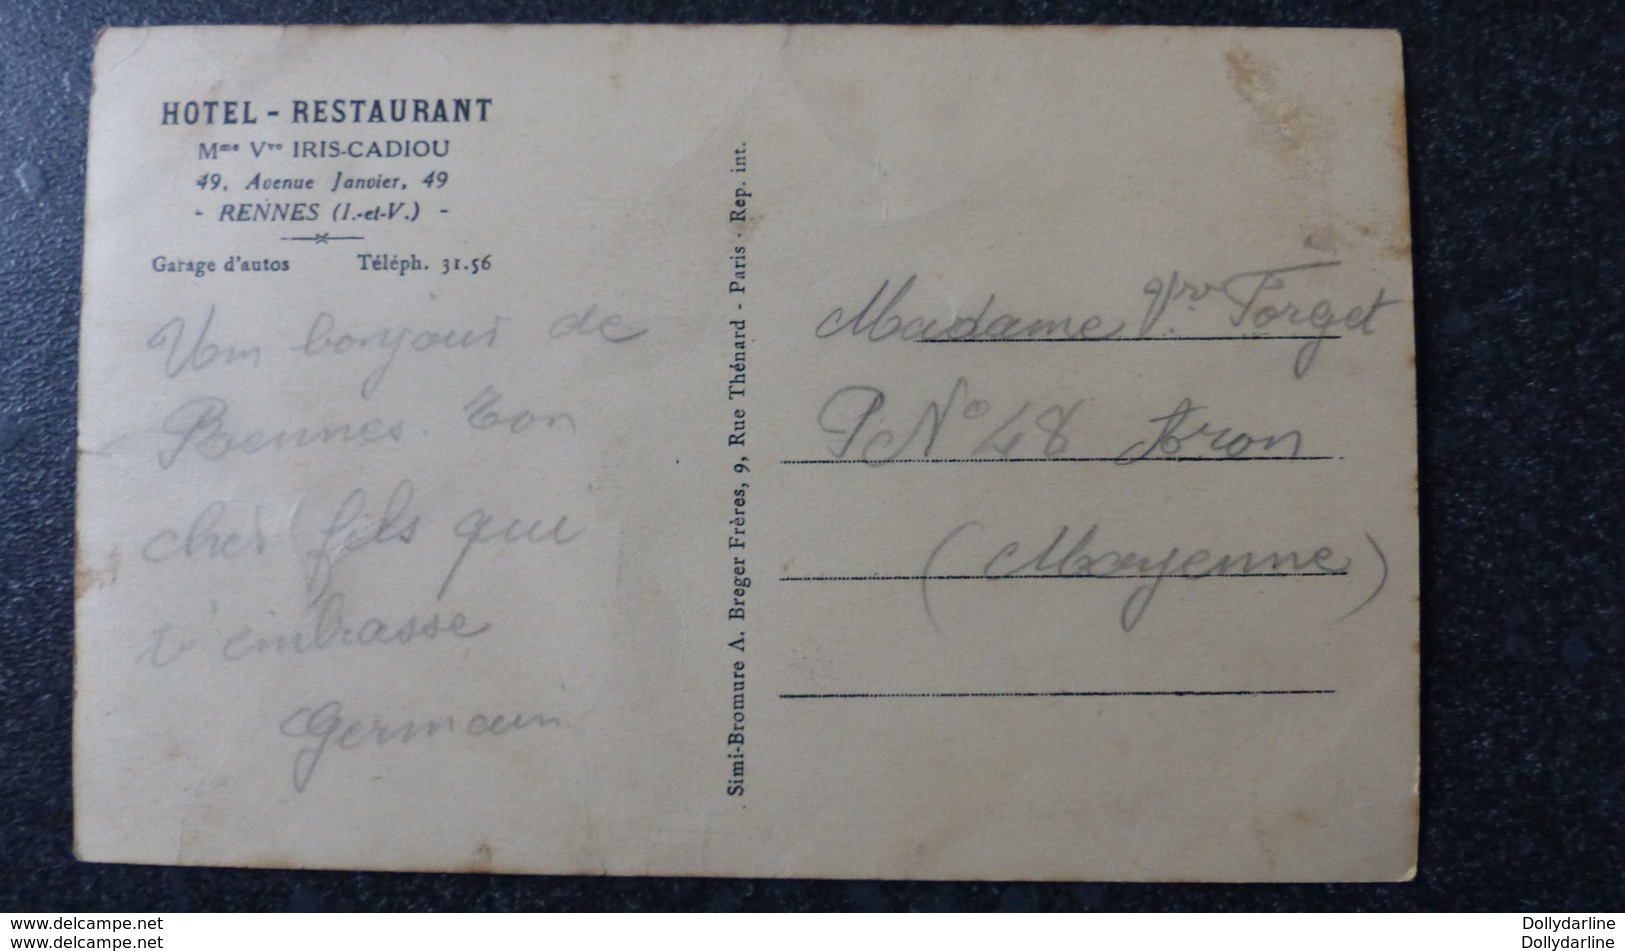 HOTEL - RESTAURANT
Mme Vve IRIS-CADIOU
49, Avenue Janvier, 49
- RENNES (I.-et-V.) -
Garage d'autos Téléph. 31.56
bonjour de
Rennes. Ton
cher fils qui
t'embrasse
Germain
Simi-Bromure A. Breger Frères, 9, Rue Thénard - Paris - Rep. int.
Madame Vve Forget
P. N° 48 Aron
(Mayenne)
www.delcampe.net
www.delcampe.net
Dollydarline
Dollydarline